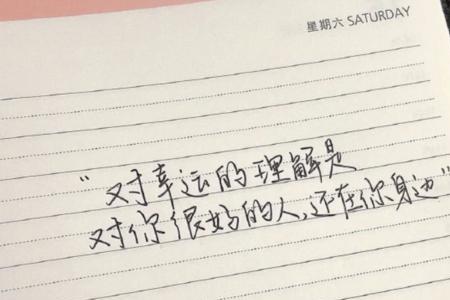 星期六 SATURDAY
“对幸运的理解是
对你很好的人，还在你身边”